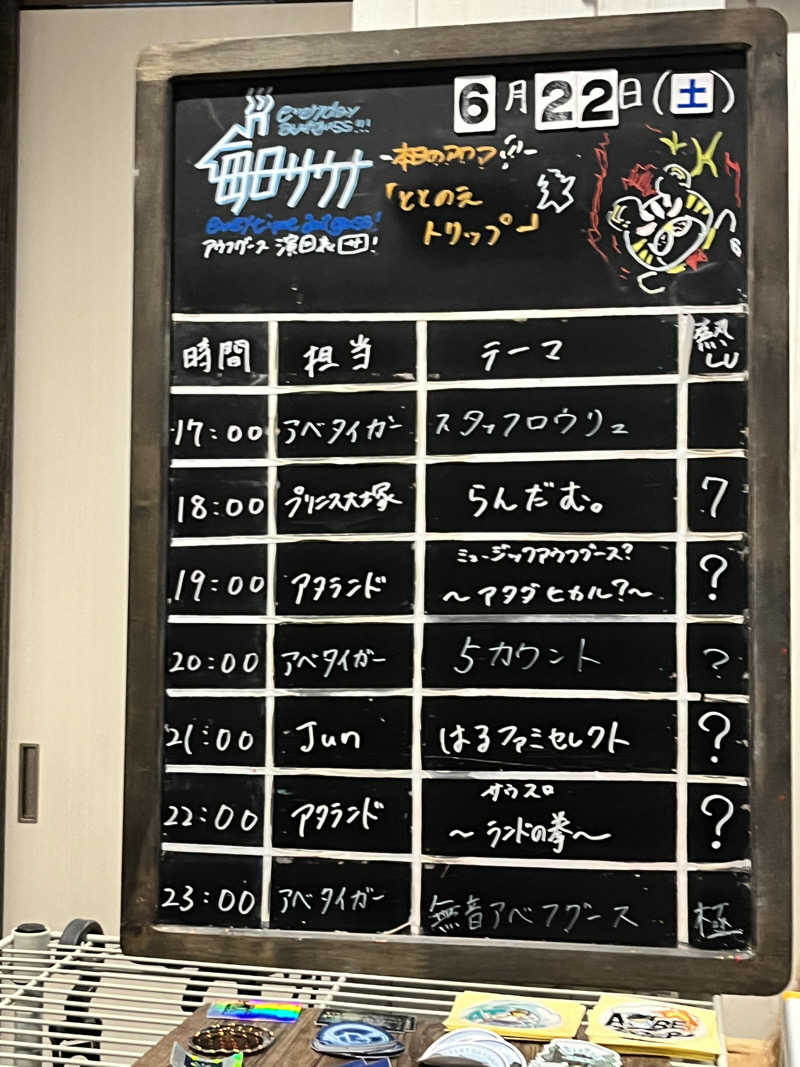 6月22日(土)
everyday
aufguss!!!
毎日サウナ
-本日のアウフ!!-
「ととのえ
トリップ」
everytime aufguss!
時間 担当 テーマ 熱
17:00 アベタイガー スタッフロウリュ
18:00 プリニス大塚 らんだむ。 7
ミュージックアウフグース?
19:00 アタランド ～アタダヒカル?～ ?
20:00 アベタイガー 5カウント ?
21:00 Jun はるファミセレクト ?
サウスロ
22:00 アタランド ～ランドの拳～ ?
23:00 アベタイガー 無音アベフグース 極